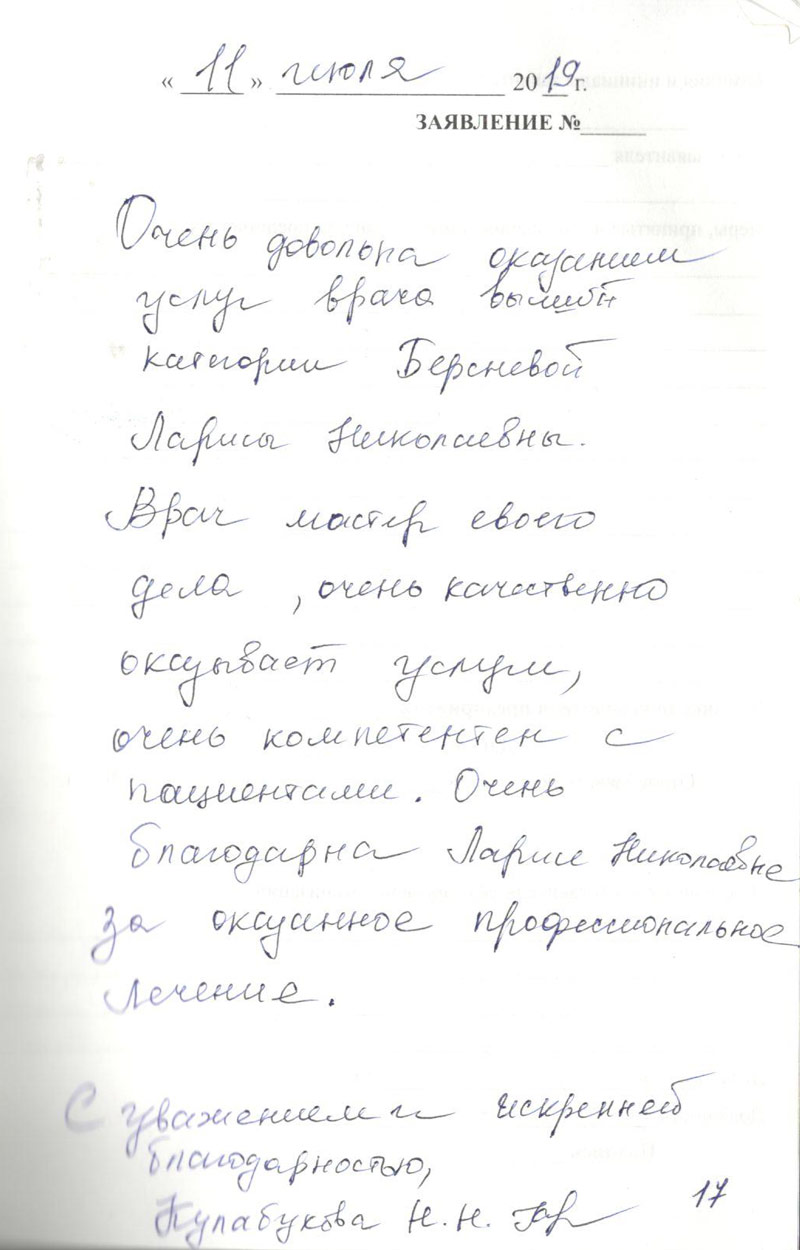 « 11 » июля 2019 г.
ЗАЯВЛЕНИЕ №
Очень довольна оказанием
услуг врача высшей
категории Берсневой
Ларисы Николаевны.
Врач мастер своего
дела , очень качественно
оказывает услуги,
очень компетентен с
пациентами. Очень
благодарна Ларисе Николаевне
за оказанное профессиональное
лечение.
С уважением и искренней
благодарностью,
Кулабухова Н.Н.
17